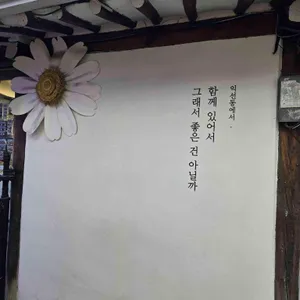 익선동에서.
함께 있어서
그래서 좋은 건 아닐까